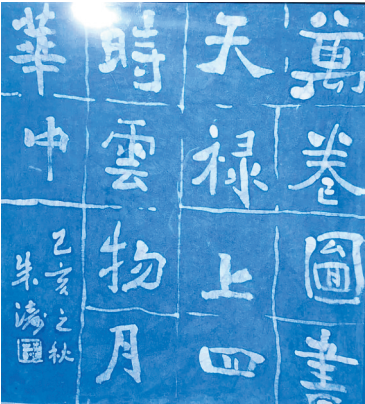 萬卷圖書
天禄上四
時雲物月
華中
己亥之秋
朱涛